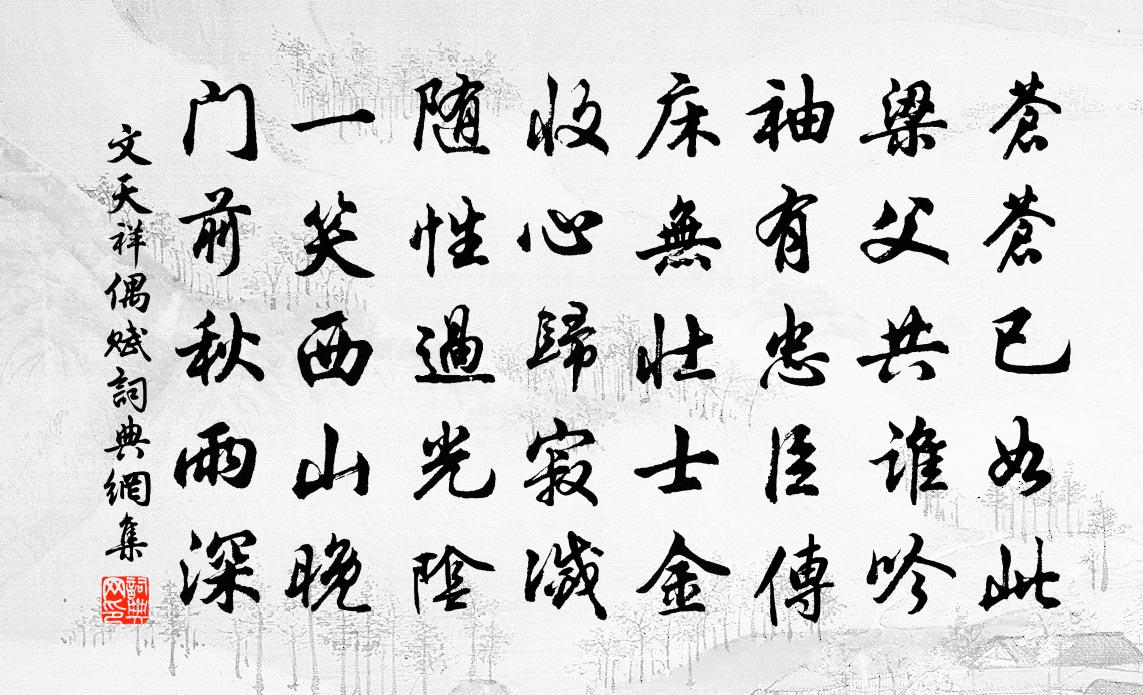 蒼蒼已如此
梁父共誰吟
袖有忠臣傳
床無壯士金
收心歸寂滅
随性過光陰
一笑西山晚
门前秋雨深
文天祥偶赋詞典網集
詞典網印